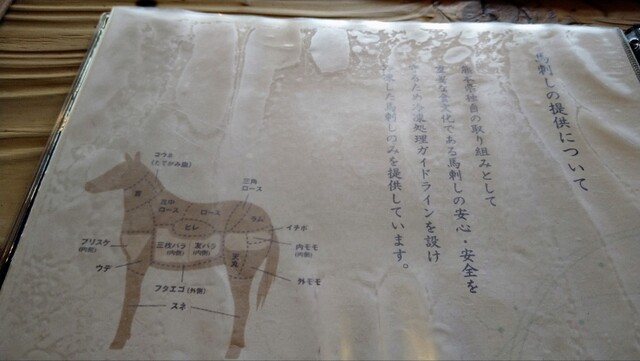 馬刺しの提供について
独自の取り組みとして
食文化である馬刺しの安心・安全を
冷凍処理ガイドラインを設け
した馬刺しのみを提供しています。
コウネ
(たてがみ脂)
肩
三角
ロース
ロース
ラム
ヒレ
イチボ
ブリスケ
(内側)
三枚バラ
(内側)
友バラ
(内側)
内モモ
(内側)
ウデ
フタエゴ(外側)
外モモ
スネ